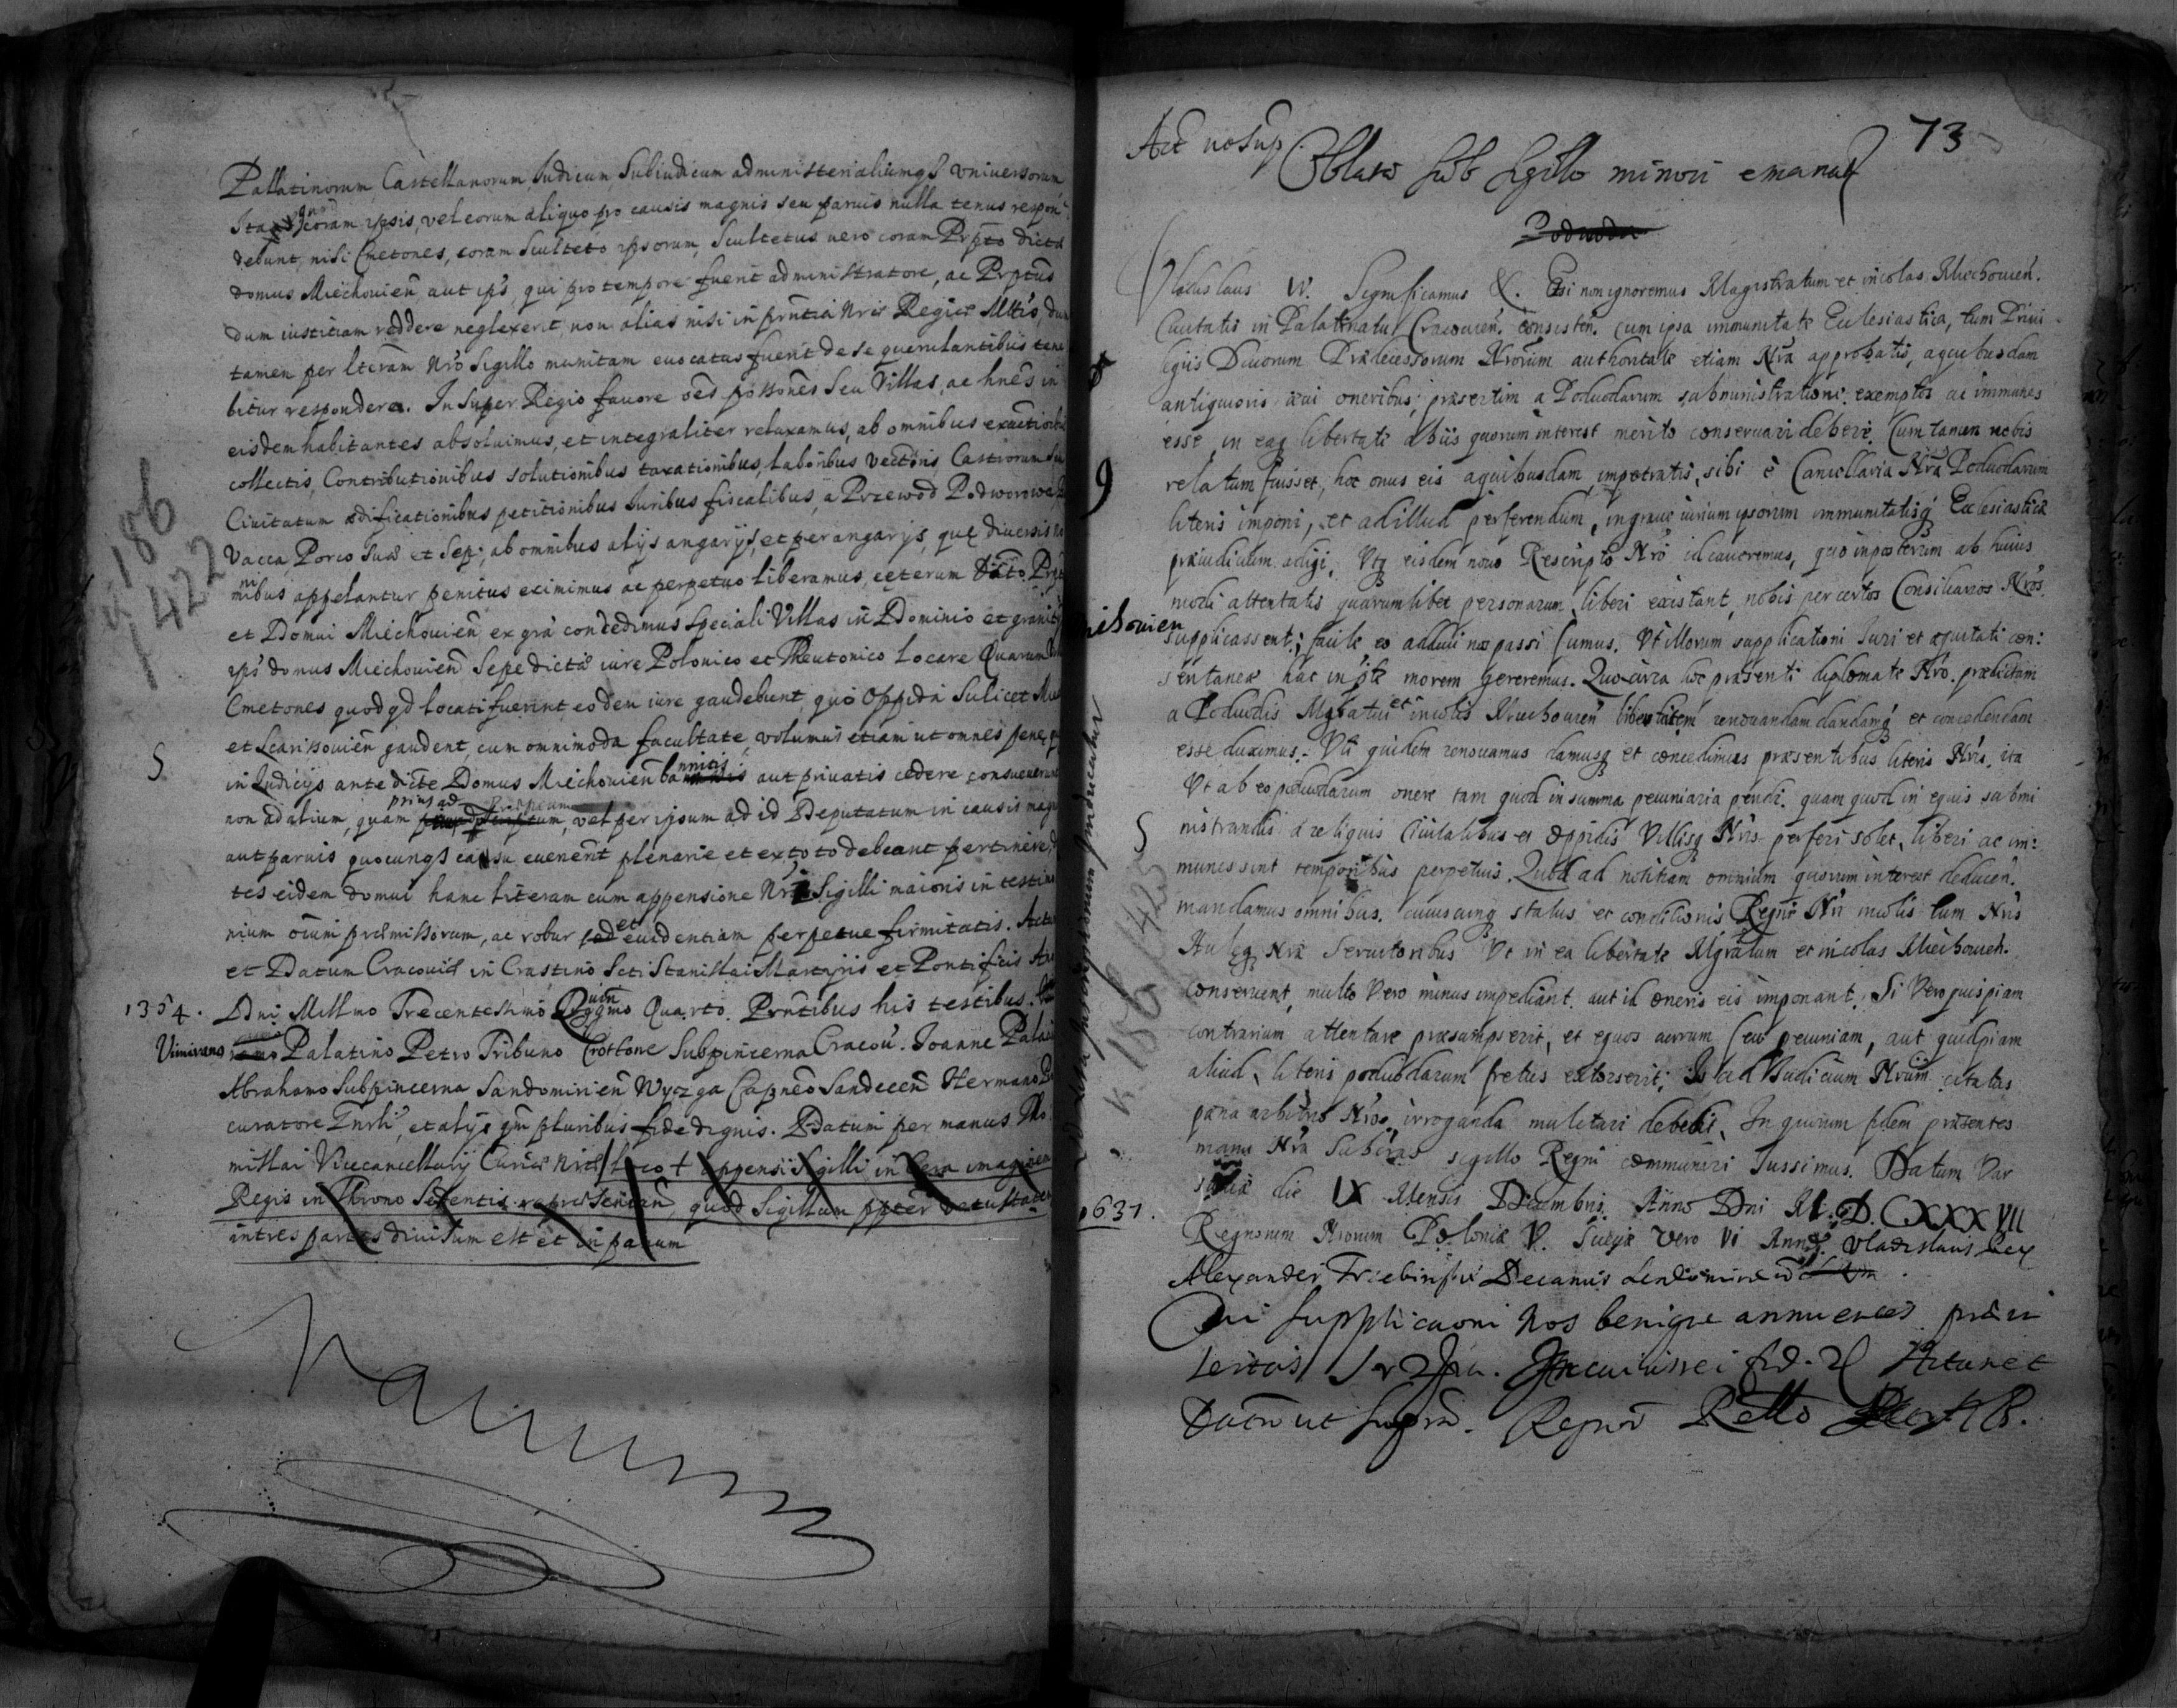 Pallatinorum Castellanorum, Iudicum, Subiudicum administerialiumq3 vniuersorum
coram ipsis, vel eorum aliquo pro causis magnis seu paruis nulla tenus respon
debunt, nisi Cmetones, coram Sculteto ipsorum, Scultetus uero coram Prpto dictæ
domus Miechouien aut ips, qui pro tempore fuerit administratore, ac Prptus
dum iustitiam reddere neglexerit non alias nisi in prntia Nræ Regiæ Mttis, dum
tamen per lteram Nro Sigillo munitam euocatus fuerit de se querulantibus tene
bitur respondere. In Super Regio fauore oes possones Seu Villas, ac hnes in
eisdem habitantes absoluimus, et integraliter relaxamus, ab omnibus exactionibus
collectis, Contributionibus solutionibus taxationibus, laboribus vectoris Castrorum
Ciuitatum ædificationibus petitionibus Iuribus fiscalibus, a Przewod Podworowe,
Vacca Porco Sua et Sep; ab omnibus alijs angarijs, et perangarijs, quę diuersis no
nibus appelantur penitus eximimus ac perpetuo liberamus, ceterum
et Domui Miechouien, ex gra concedimus speciali Villas in Dominio et
ips domus Miechouien Sepe dictæ iure Polonico et Theutonico Locare Quarum
Cmetones quodqd locati fuerint eodem iure gaudebunt, quo Oppida Sulicet
et Scarissouien gaudent, cum omnimoda facultate, volumus etiam ut omnes pene, q
in Iudicijs ante dicte Domus Miechouien aut priuatis cedere consueuerunt
non ad alium, quam prius ad Prptum, vel per ipsum ad id Deputatum in causis mag
aut paruis quocunq3 casu euenent plenarie et ex toto debeant pertinere,
tes eidem domui hanc literam cum appensione Nri Sigilli maioris in testimo
nium oium præmissorum, ac robur et euidentiam perpetue firmitatis. Actum
et Datum Cracouiæ in Crastino Scti Stanislai Martyris et Pontificis An
1354. Dni Millmo Trecentesimo Quinqgmo Quarto. Prntibus his testibus.
Vimirano Palatino Petro Tribuno Crottone Subpincerna Cracou. Ioanne
Abrahamo Subpincerna Sandomirien Wyczga Capneo Sandecen Hermano
curatore Tnrli, et alijs qm pluribus fide dignis. Datum per manus Tho
mislai Vicecancellarij Curiæ Nræ Loco + appensi Sigilli in Cera imaginem
Regis in Throno Sedentis repræsentan, quod Sigillum ppter vetustatem
in tres partes diuisum est et in parum
186
422
Act ut Sup
73
Oblata sub sigillo minori emanat
Podwoda
Vladislaus IV. Significamus &. Etsi non ignoremus Magistratum et incolas Miechouien.
Ciuitatis in Palatinatu Cracouien. consisten. cum ipsa immunitate Ecclesiastica, tum Priui
legiis Diuorum Prædecessorum Nrorum authoritate etiam Nra approbatis, a quibusdam
antiquioris æui oneribus, præsertim a Poduodarum subministrationi, exemptos ac immunes
esse, in eaq libertate ab iis quorum interest merito conseruari debere, Cum tamen nobis
relatum fuisset, hoc onus eis a quibusdam impetratis, sibi è Cancellaria Nra Poduodarum
literis imponi, et ad illud perferendum, in graue iurium ipsorum immunitatisq3 Ecclesiasticæ
præiudicium adigi, Vtq3 eisdem nouo Rescripto Nro id caueremus, quo in posterum ab huius
modi attentatis quarumlibet personarum liberi existant, nobis per certos Consiliarios Nros
supplicassent; facile eo adduci nos passi sumus, Vt illorum supplicationi Iuri et æquitati con:
sentaneæ hac in pte morem gereremus. Quo circa hoc præsenti diplomate Nro. prædictam
a Poduodis Mgratui et incolis Miechouien libertatem renouandam dandamq3 et concedendam
esse duximus. Vti quidem renouamus damusq3 et concedimus præsentibus literis Nris, ita
Vt ab eo poduodarum onere tam quod in summa pecuniaria pendi. quam quod in equis submi
nistrandis a reliquis Ciuitatibus et oppidis Villisq3 Nris perferi solet, liberi ac im:
munes sint temporibus perpetuis. Quod ad notitiam omnium quorum interest deducen.
mandamus omnibus. cuiuscunq3 status et conditionis Regni Nri incolis tum Nris
Aulæq3 Nræ Seruitoribus Vt in ea libertate Mgratum et incolas Miechouien.
conseruent, multo Vero minus impediant. aut id oneris eis imponant. Si Vero quispiam
contrarium attentare præsumpserit, et equos currum seu pecuniam, aut quidpiam
aliud, literis poduodarum fretus extorserit; Is ad Iudicium Nrum citatus
pæna arbitrio Nro. irroganda mulctari debebit, In quorum fidem præsentes
manu Nra Subscras sigillo Regni communiri Iussimus. Datum Var
sauiæ die IX Mensis Decembris. Anno Dni M.D.CXXXVII
Regnorum Nrorum Poloniæ V. Sueciæ Vero VI Anno. Vladislaus Rex
Alexander Trzebinski Decanus
Cui supplicaoni Nos benigne annuentes
Datum ut supra.
1637.
9
k 186/423